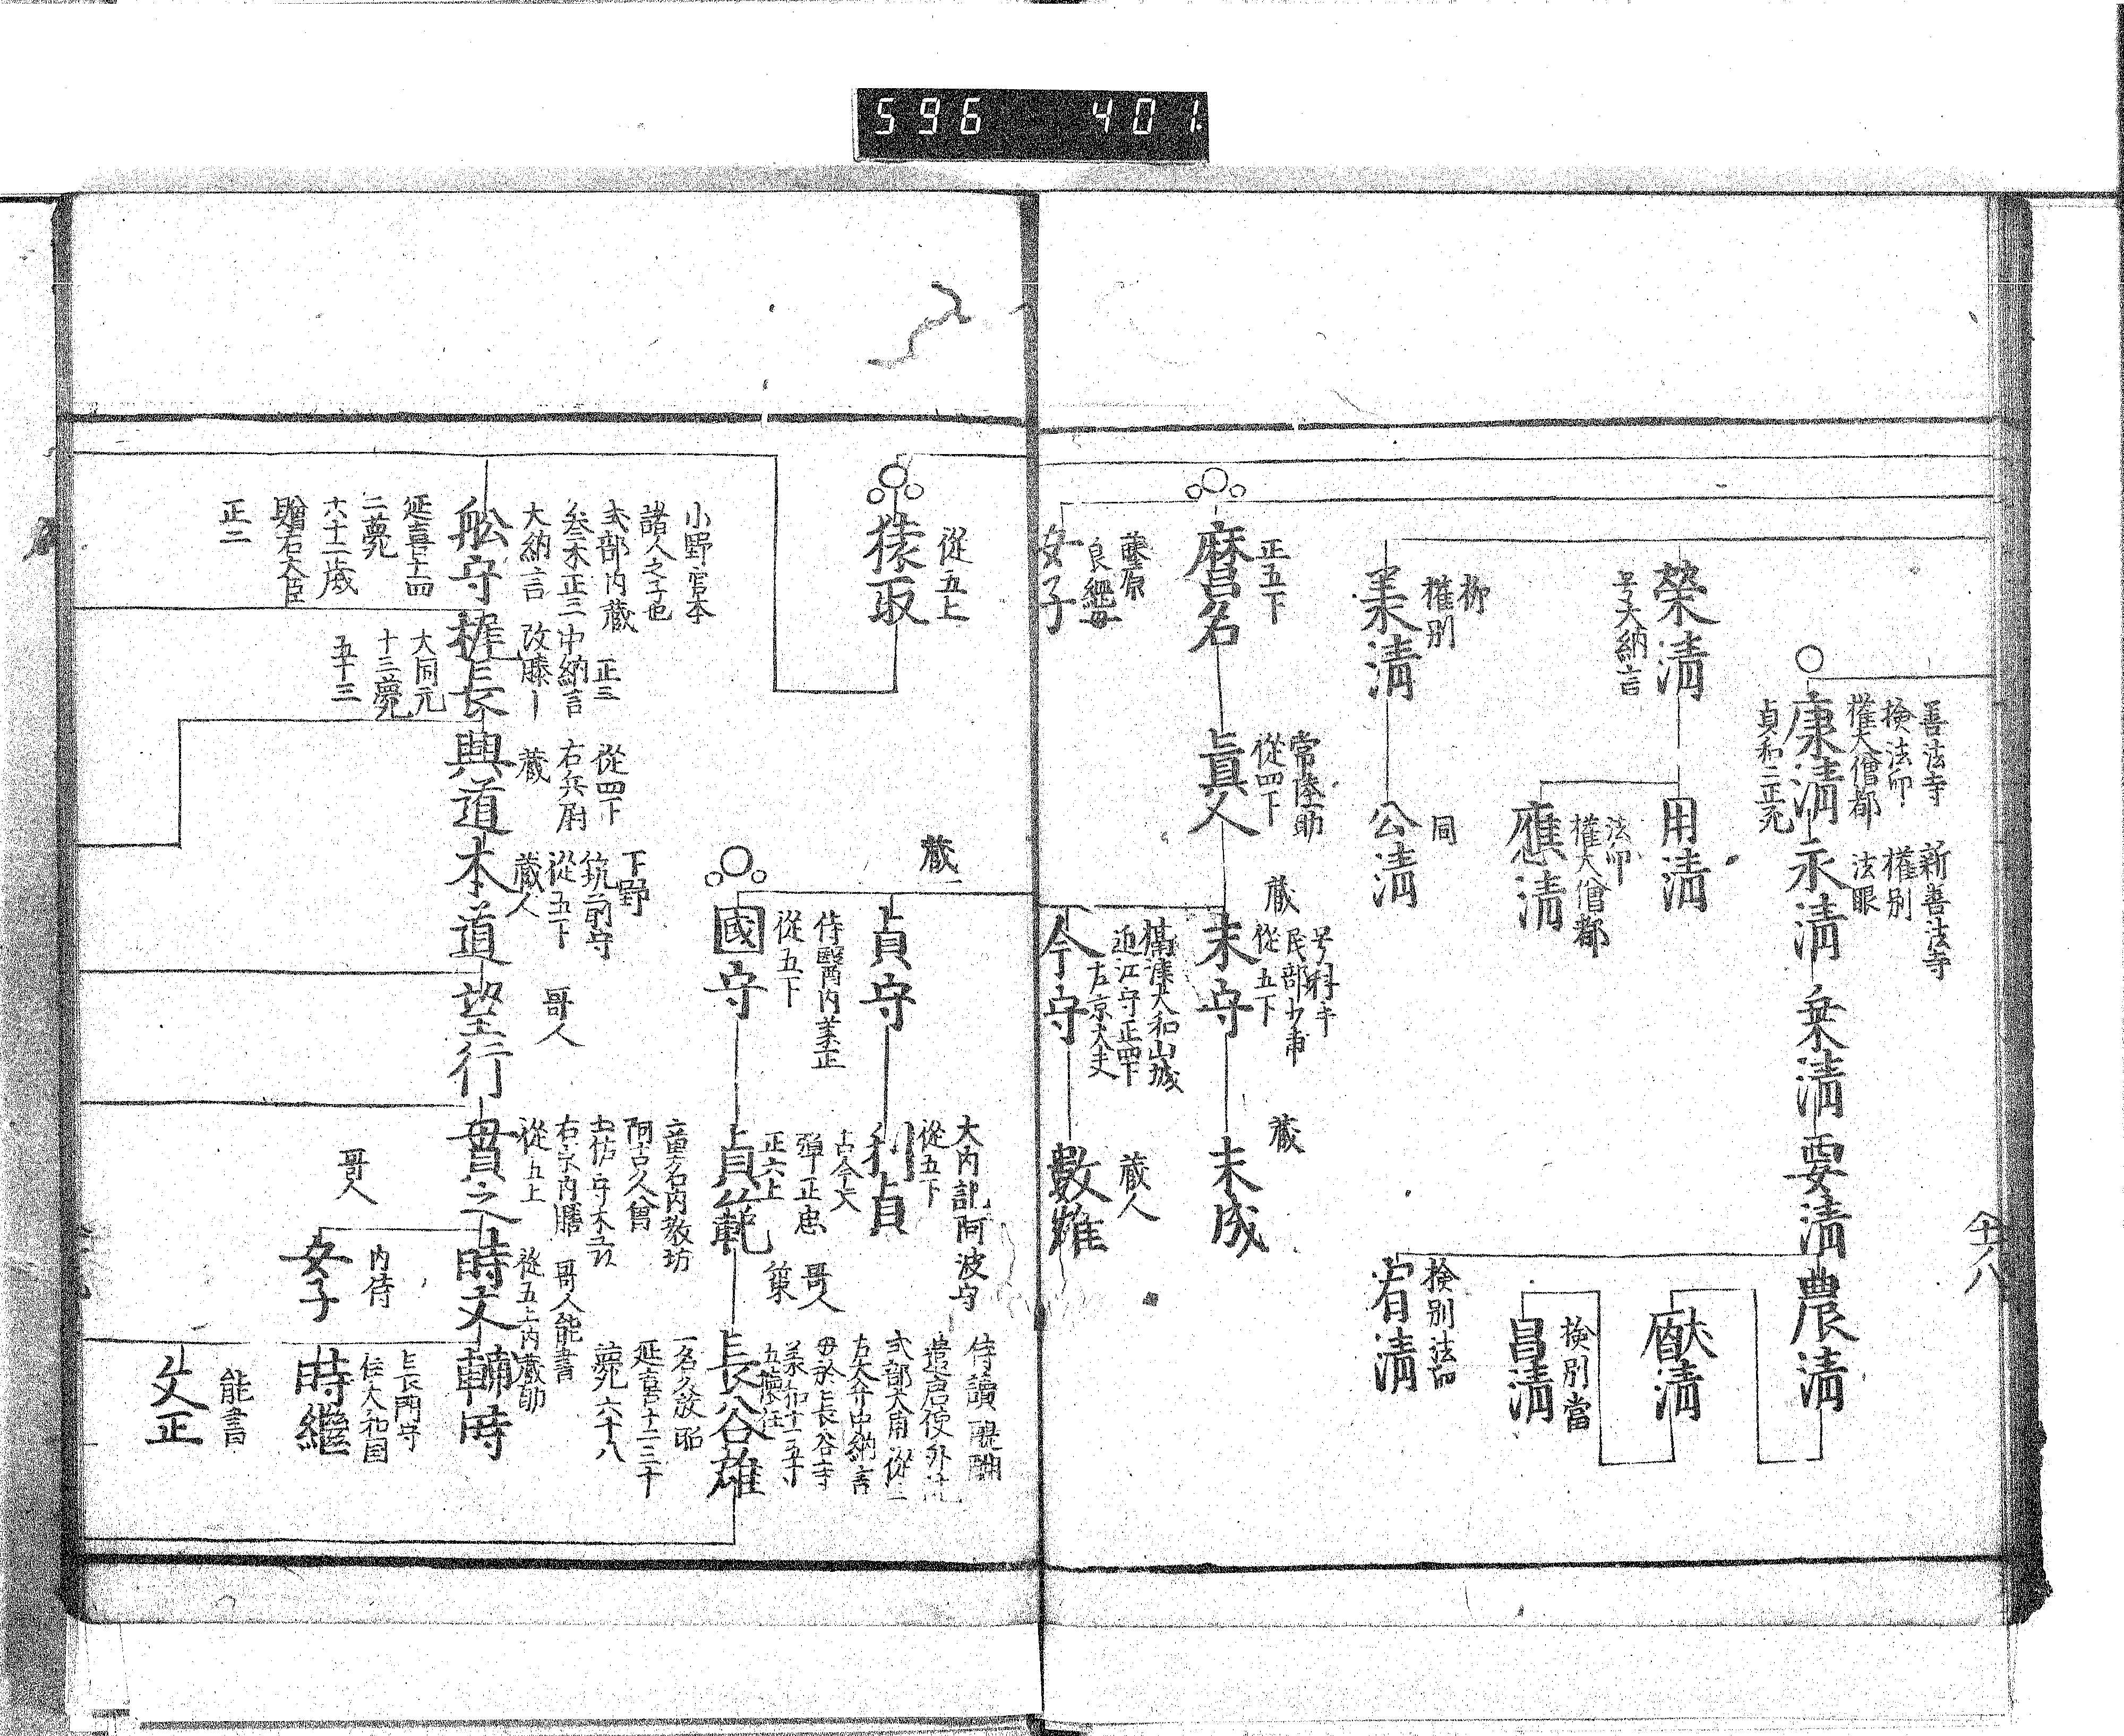 596 401
善法寺
検法印
権大僧都
康清
貞和二正死
新善法寺
権別
法眼
永清
乗清
要清
農清
献清
検別當
昌清
検別法印
宥清
榮清
号大納言
用清
法印
権大僧都
應清
柳
権別
美清
同
公清
正五下
麿名
常陸助
従四下
真人
蔵
民部少甫
従五下
末守
蔵
末成
藤原
良縄母
女子
摂津大和山城
近江守正四下
左京大夫
今守
蔵人
數雄
従五上
猿取
蔵
貞守
大内記阿波守
従五下
利貞
古今大
侍醫内美正
従五下
國守
弾正忠
正六上
貞範
哥人
侍讀 醍醐
式部大甫従三
左大弁中納言
母於長谷寺
長谷雄
一名久發昭
延喜十二三十
薨六十八
小野宮本
諸人之子也
式部内蔵 正三
叅木正三中納言
大納言 改勝
船守
延喜十四
二薨
六十二歳
贈右大臣
正二
梶長
大同元
十三薨
五十三
従四下
右兵尉
蔵
興道
下野
筑前守
従五下
蔵人
本道
哥人
望行
童名内教坊
阿古久曽
土佐守木工頭
右京内膳 哥人能書
従五上
貫之
哥人
従五上内蔵助
時文
内侍
女子
輔時
長門守
住大和国
時継
能書
文正